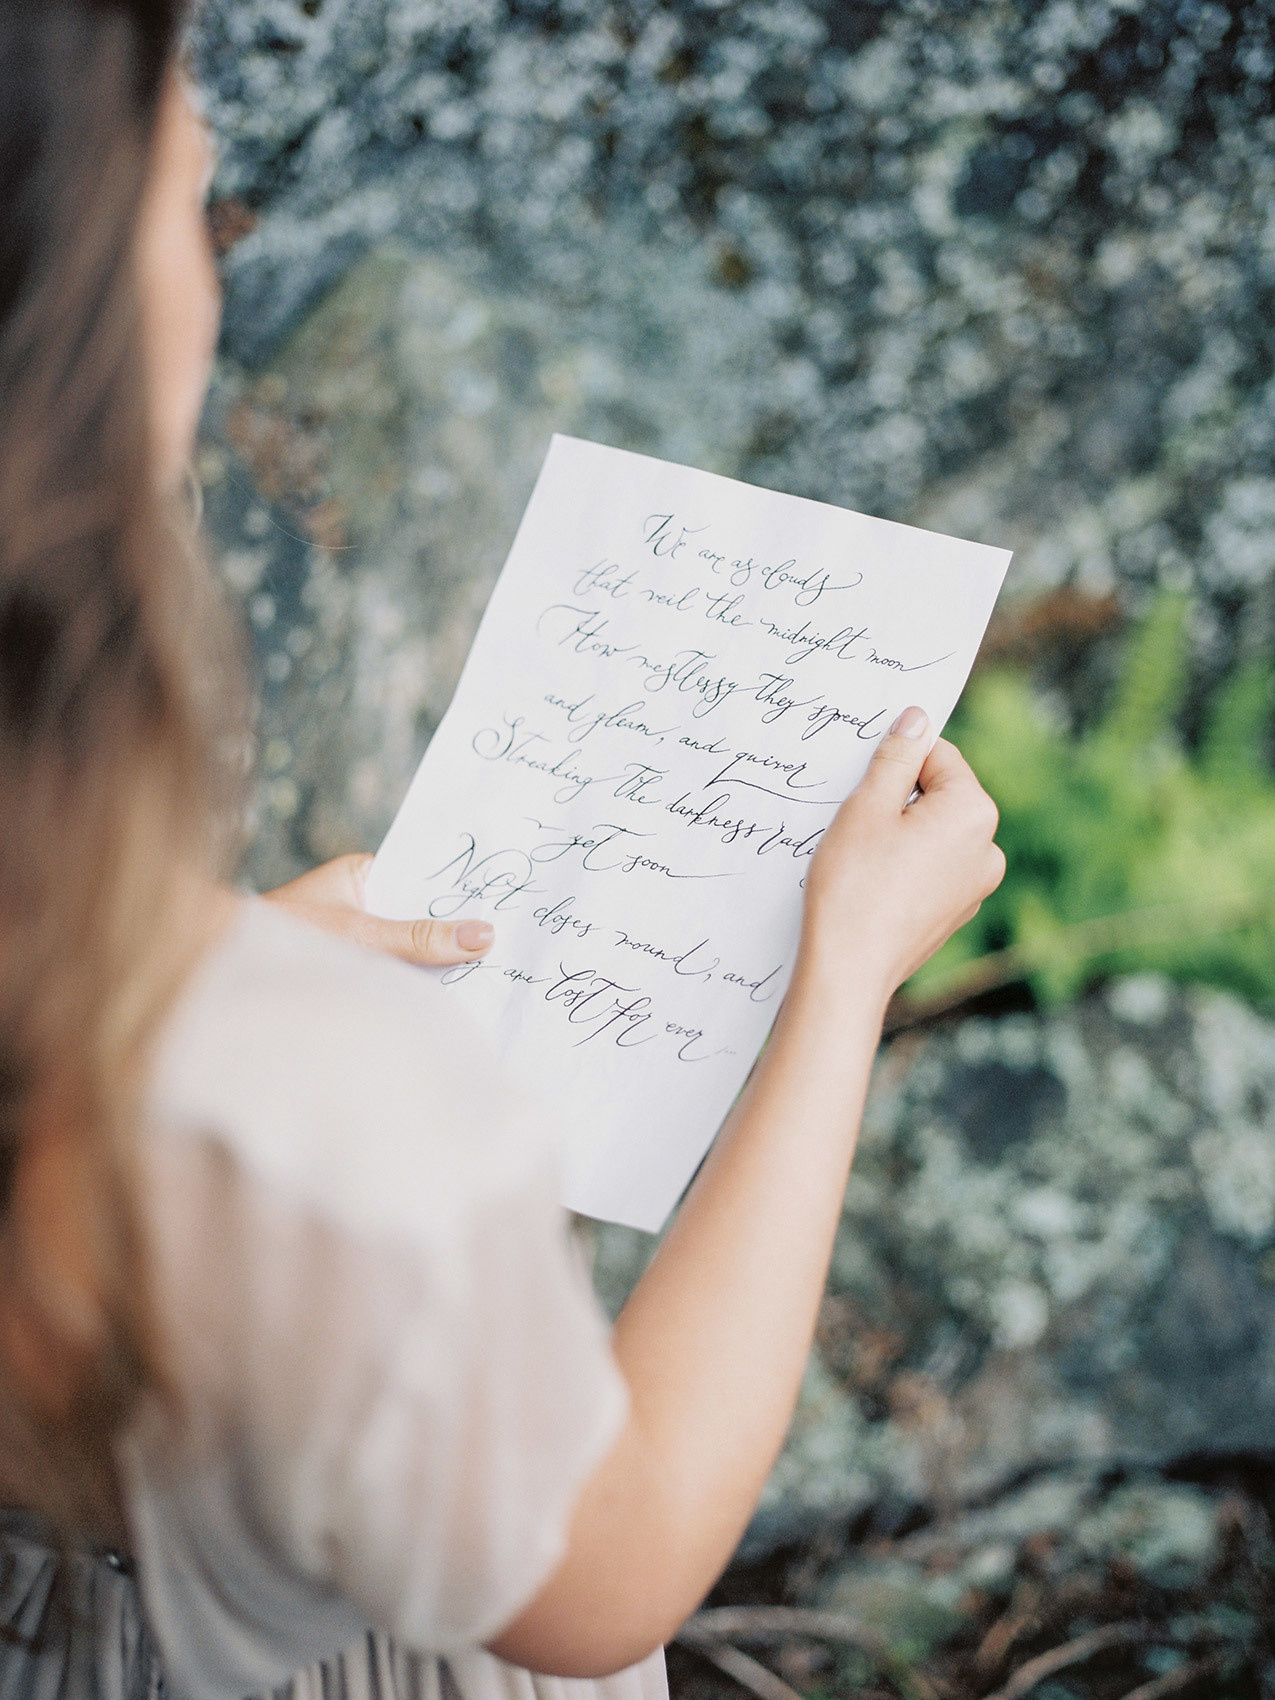 We are as clouds
that veil the midnight moon
How restlessy they speed
and gleam, and quiver
Streaking the darkness radi
– yet soon
Night closes round, and
y are lost for ever